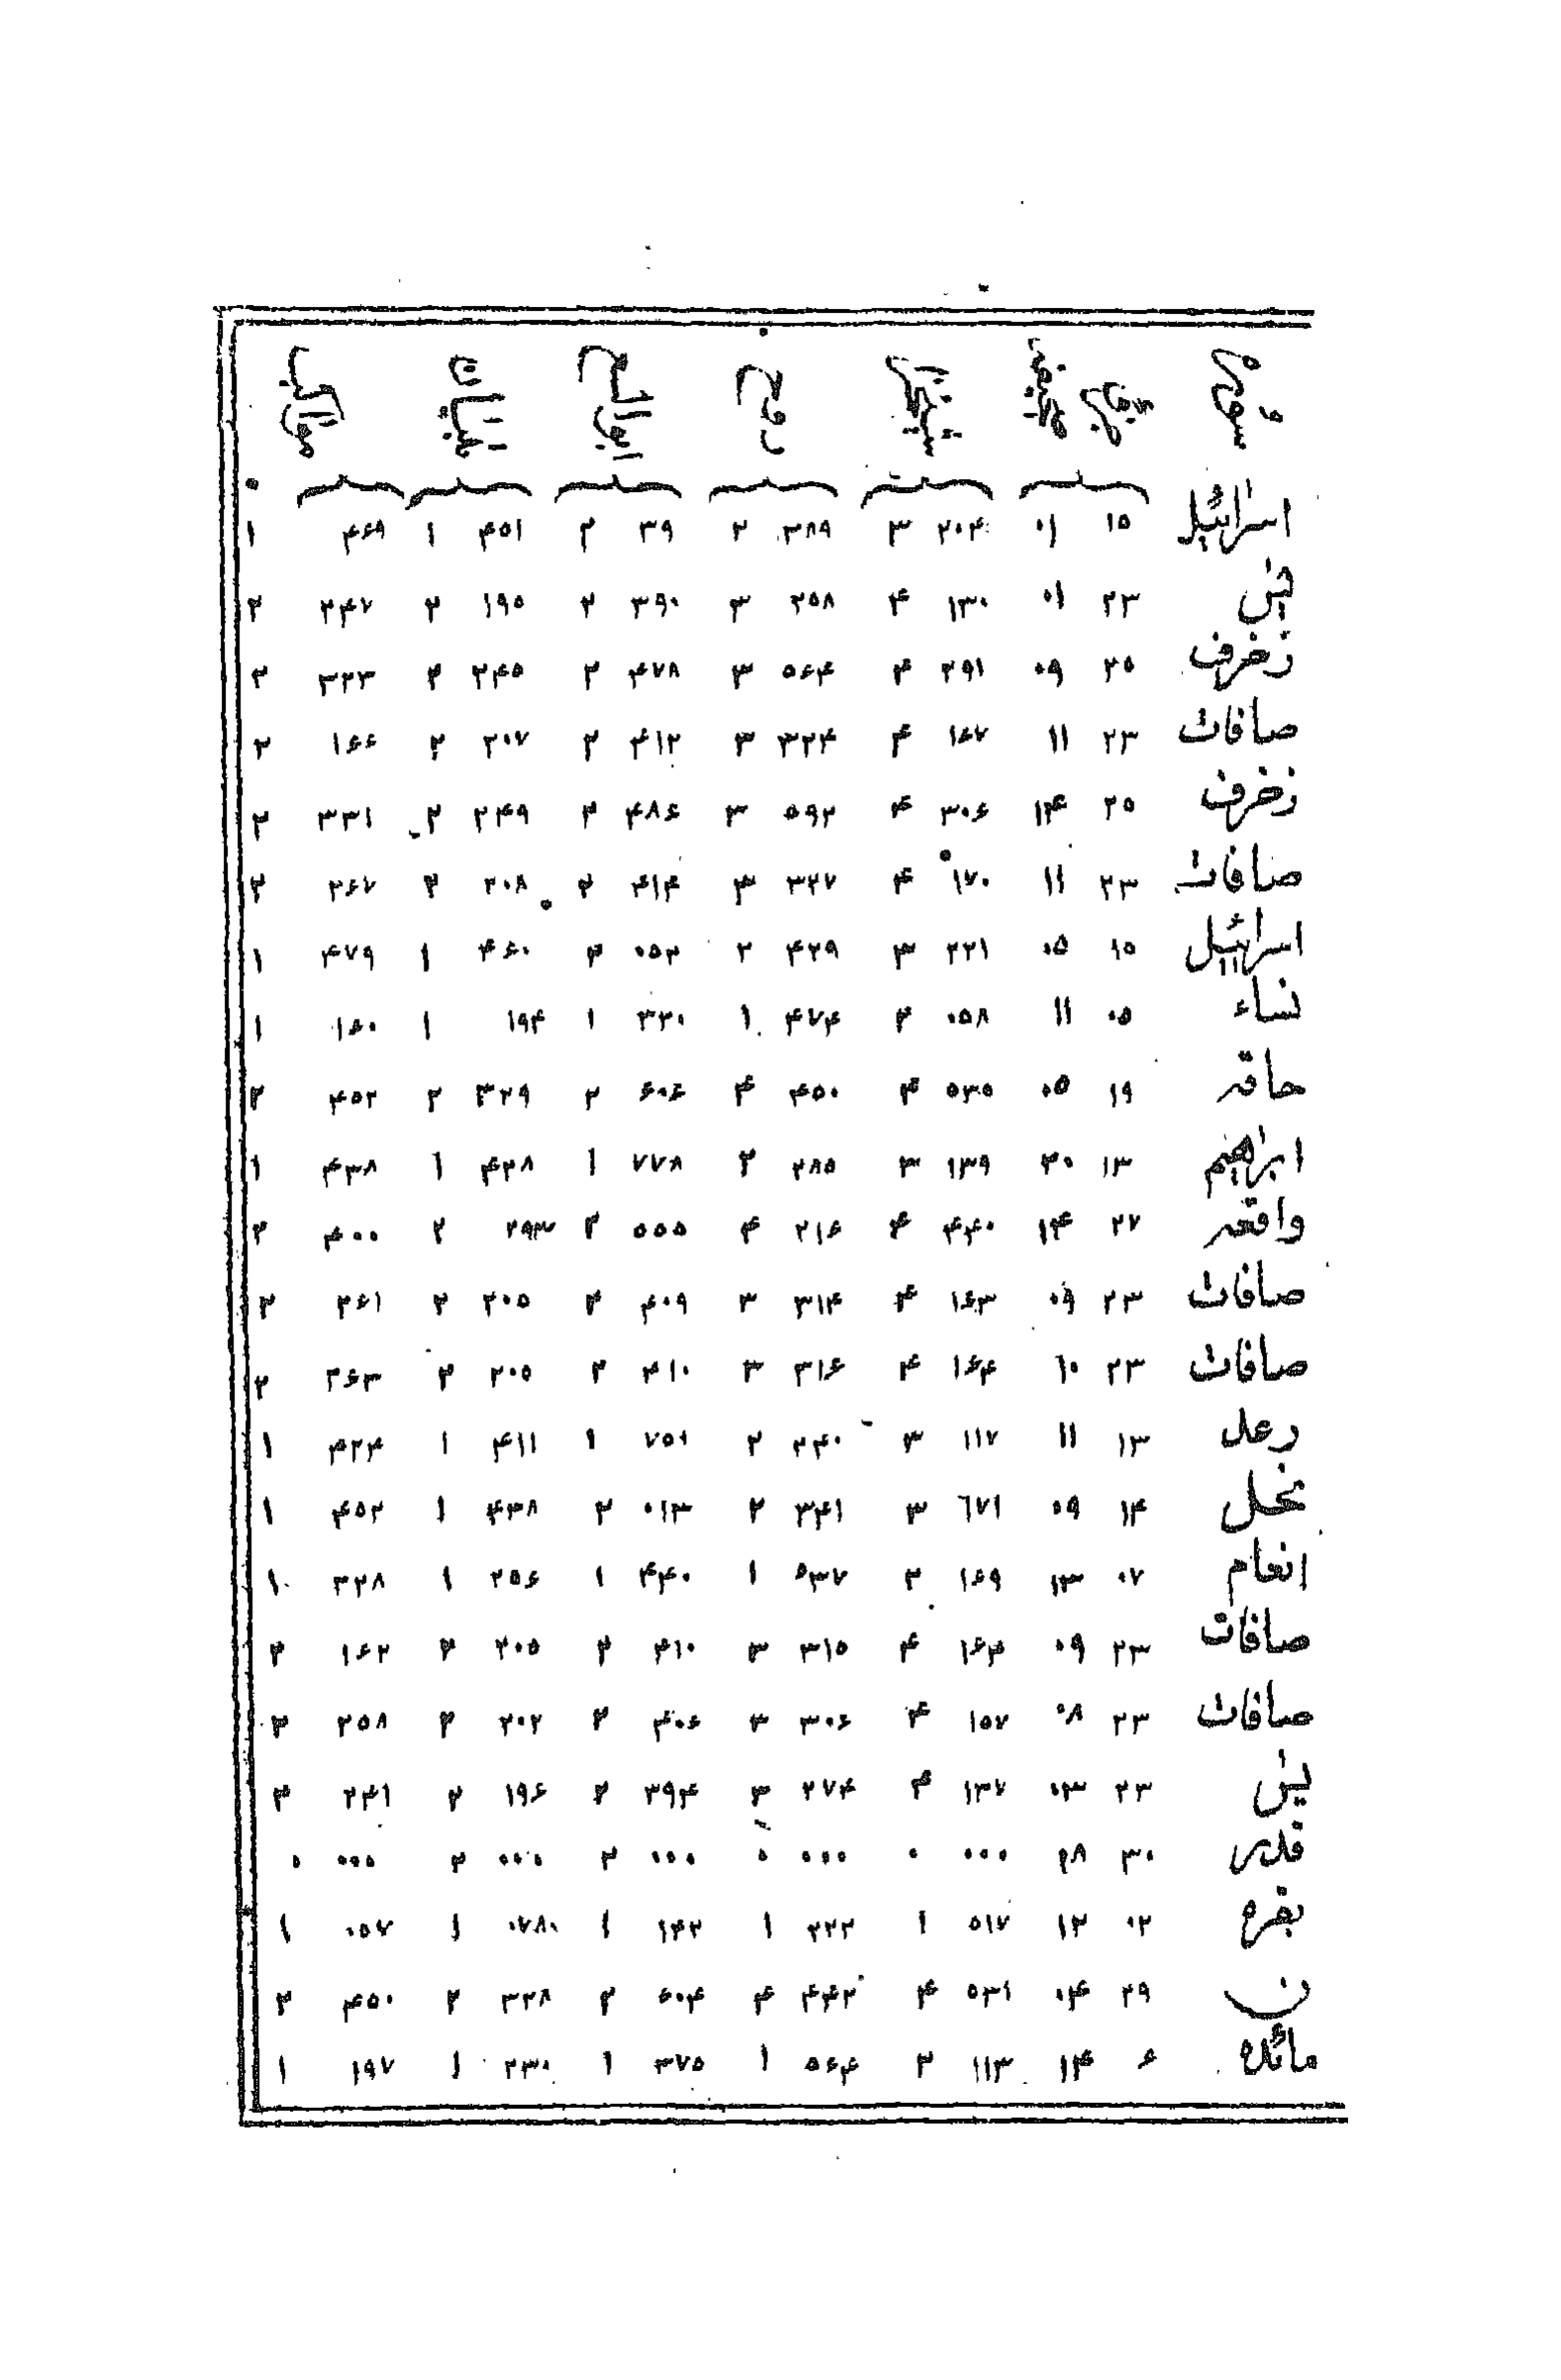 اسرائیل ۱۵ ۰۱ ۲۰۴ ۳ ۳۸۹ ۲ ۳۹ ۲ ۴۵۱ ۱ ۴۶۹ ۱
یٰس ۲۳ ۰۱ ۱۳۰ ۴ ۲۵۸ ۳ ۳۹۰ ۲ ۱۹۵ ۲ ۲۴۷ ۲
زخرف ۲۵ ۰۹ ۲۹۱ ۴ ۵۶۴ ۳ ۴۷۸ ۲ ۲۴۵ ۲ ۳۲۳ ۲
صافات ۲۳ ۱۱ ۱۶۷ ۴ ۳۲۴ ۳ ۴۱۲ ۲ ۲۰۷ ۲ ۱۶۶ ۲
زخرف ۲۵ ۱۴ ۳۰۶ ۴ ۵۹۲ ۳ ۴۸۶ ۲ ۲۴۹ ۲ ۳۳۱ ۲
صافات ۲۳ ۱۱ ۱۷۰ ۴ ۳۲۷ ۳ ۴۱۴ ۲ ۲۰۸ ۲ ۲۶۷ ۲
اسرائیل ۱۵ ۰۵ ۲۲۱ ۳ ۴۲۹ ۲ ۰۵۲ ۲ ۴۶۰ ۱ ۴۷۹ ۱
نساء ۰۵ ۱۱ ۰۵۸ ۲ ۴۷۴ ۱ ۳۲۰ ۱ ۱۹۴ ۱ ۱۶۰ ۱
حاقہ ۱۹ ۰۵ ۵۳۵ ۴ ۴۵۰ ۴ ۶۰۶ ۲ ۳۲۹ ۲ ۴۵۲ ۲
ابراھیم ۱۳ ۲۰ ۱۳۹ ۳ ۲۸۵ ۲ ۷۷۸ ۱ ۴۲۸ ۱ ۴۳۸ ۱
واقعہ ۲۷ ۱۴ ۴۴۰ ۴ ۲۱۶ ۴ ۵۵۵ ۲ ۲۹۳ ۲ ۴۰۰ ۲
صافات ۲۳ ۰۹ ۱۶۳ ۴ ۳۱۴ ۳ ۴۰۹ ۲ ۲۰۵ ۲ ۲۶۱ ۲
صافات ۲۳ ۱۰ ۱۶۴ ۴ ۳۱۶ ۳ ۴۱۰ ۲ ۲۰۵ ۲ ۲۶۳ ۲
رعد ۱۳ ۱۱ ۱۱۷ ۳ ۲۴۰ ۲ ۷۵۱ ۱ ۴۱۱ ۱ ۴۲۴ ۱
نحل ۱۴ ۰۹ ۱۷۱ ۳ ۳۴۱ ۲ ۰۱۳ ۲ ۴۳۸ ۱ ۴۵۲ ۱
انعام ۰۷ ۱۳ ۱۶۹ ۲ ۵۳۷ ۱ ۴۴۰ ۱ ۲۵۶ ۱ ۲۲۸ ۱
صافات ۲۳ ۰۹ ۱۶۴ ۴ ۳۱۵ ۳ ۴۱۰ ۲ ۲۰۵ ۲ ۱۶۲ ۲
صافات ۲۳ ۰۸ ۱۵۷ ۴ ۳۰۶ ۳ ۴۰۶ ۲ ۲۰۲ ۲ ۲۵۸ ۲
یٰس ۲۳ ۰۳ ۱۳۷ ۴ ۲۷۴ ۳ ۳۹۴ ۲ ۱۹۶ ۲ ۲۴۱ ۲
قدر ۳۰ ۰۰۰ ۰ ۰۰۰ ۰ ۰۰۰ ۲ ۰۰۰ ۲ ۰۰۰ ۰
بقرہ ۰۲ ۱۲ ۵۱۷ ۱ ۲۲۲ ۱ ۱۴۲ ۱ ۰۷۸۰ ۱ ۰۵۷ ۱
ن ۲۹ ۰۴ ۵۳۱ ۴ ۴۴۲ ۴ ۶۰۴ ۲ ۳۲۸ ۲ ۴۵۰ ۲
مائدہ ۶ ۱۴ ۱۱۳ ۲ ۵۶۴ ۱ ۳۷۵ ۱ ۲۳۰ ۱ ۱۹۷ ۱